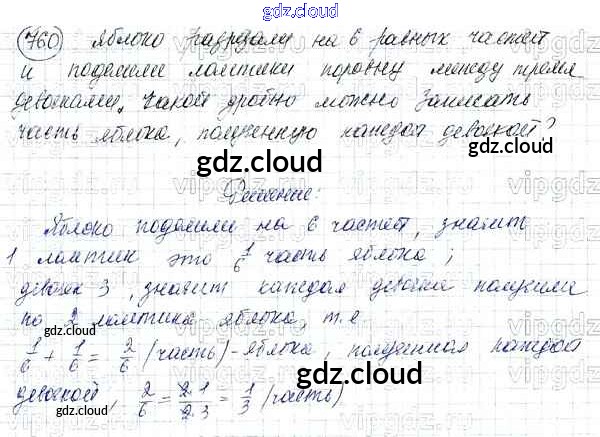 gdz.cloud
760 Яблоко разрезали на 6 равных частей
и поделили ломтики поровну между тремя
девочками. Какой дробью можно записать
часть яблока, полученную каждой девочкой?
gdz.cloud
gdz.cloud
Решение:
Яблоко поделили на 6 частей, значит
1 ломтик это 1/6 часть яблока;
девочек 3, значит каждая девочка получила
по 2 ломтика яблока, т.е.
gdz.cloud
1/6 + 1/6 = 2/6 (часть) - яблока, полученная каждой
девочкой, 2/6 = 2·1/2·3 = 1/3 (часть)
gdz.cloud
gdz.cloud
gdz.cloud